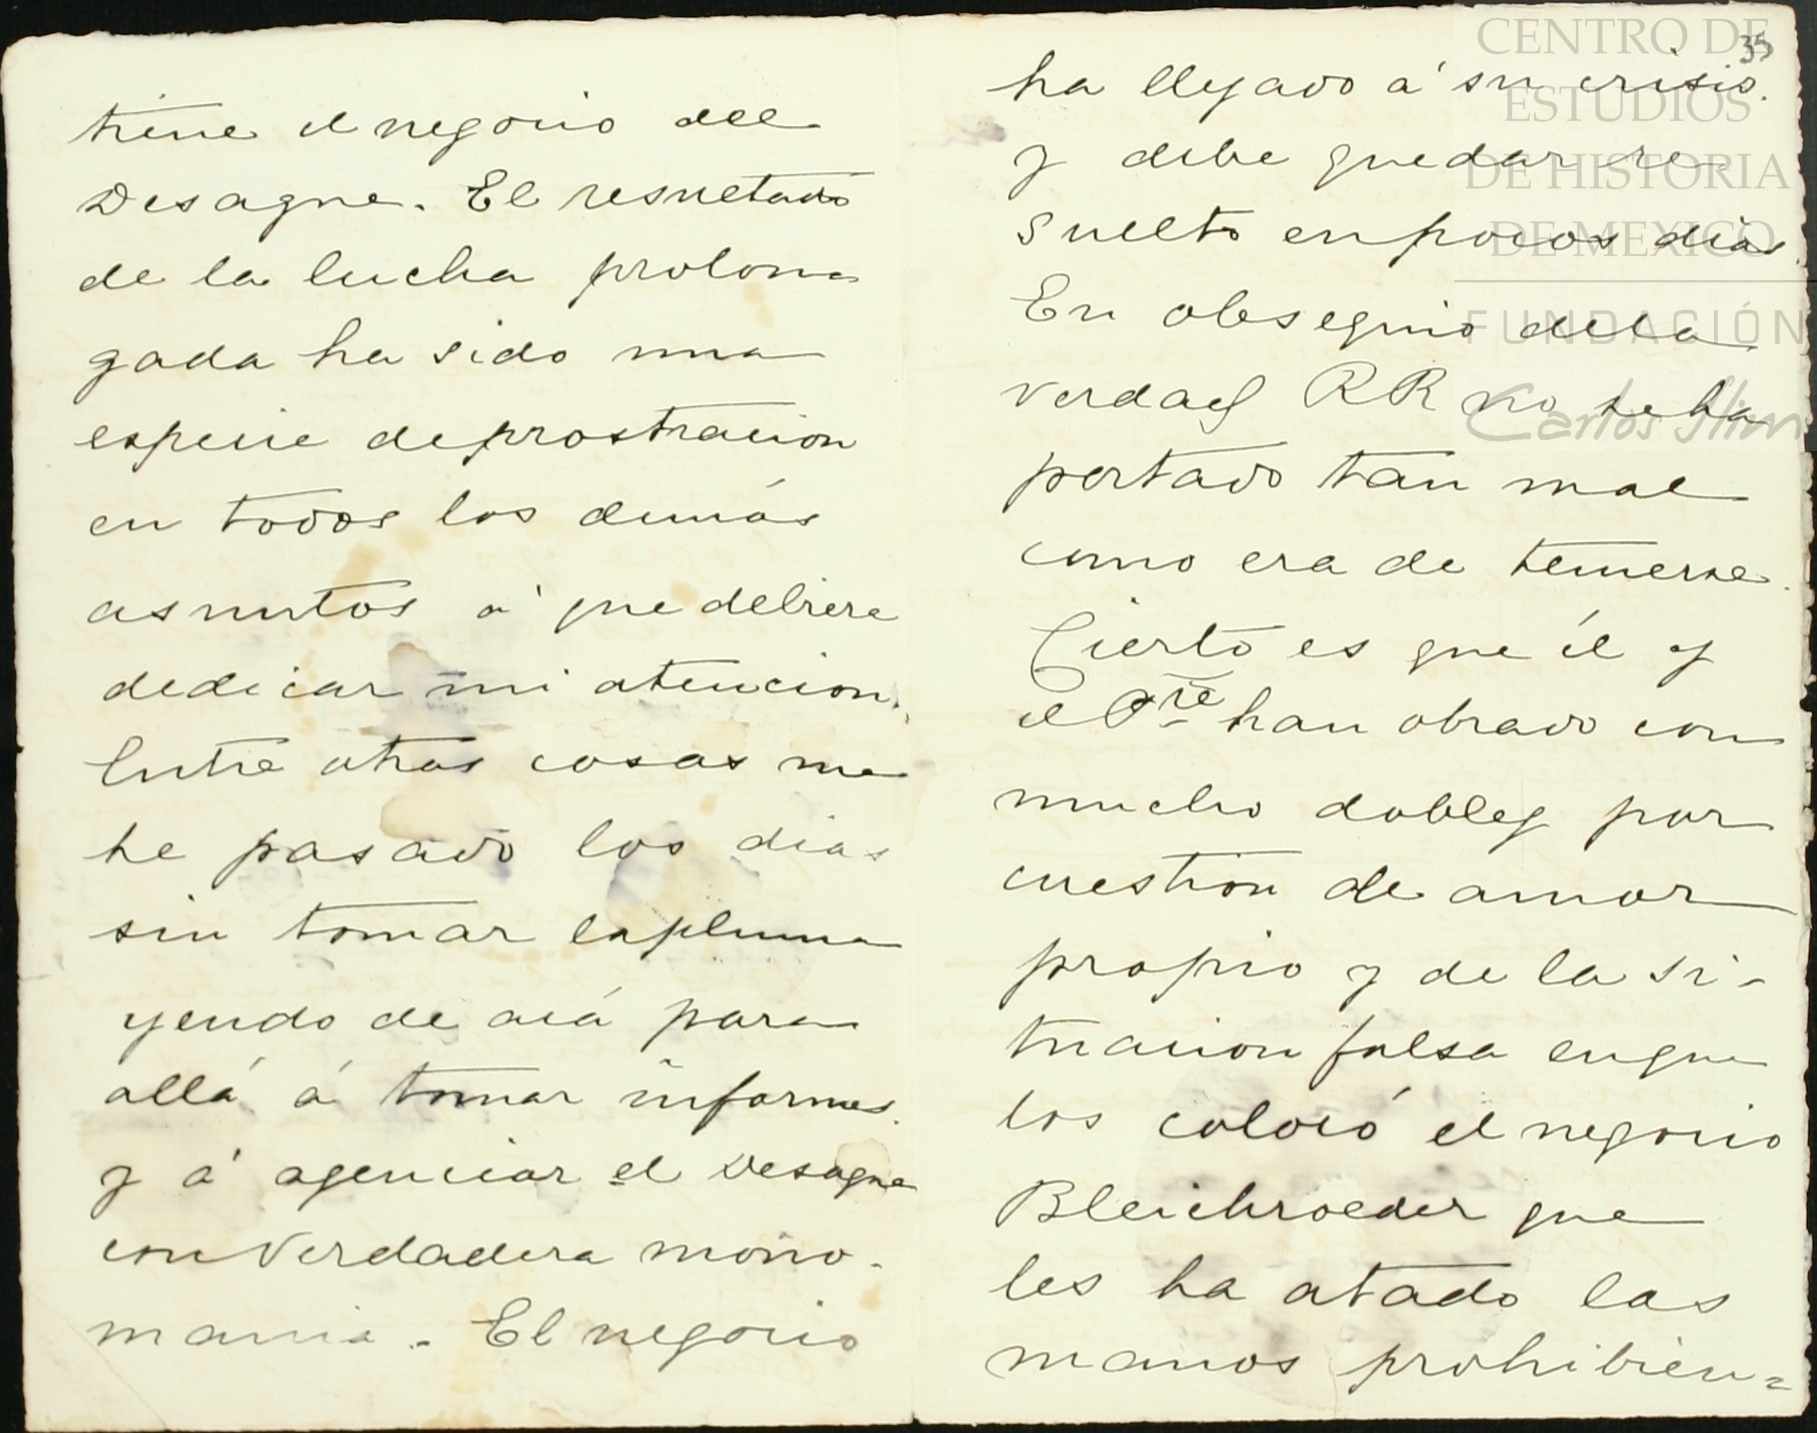 tiene el negocio del
Desague. El resultado
de la lucha prolon-
gada ha sido una
especie de prostracion
en todos los demás
asuntos á que debiera
dedicar mi atencion.
Entre otras cosas me
he pasado los dias
sin tomar la pluma
yendo de acá para
allá á tomar informes
y á agenciar el Desague
con verdadera mono-
mania. El negocio
35
ha llegado á su crisis.
y debe quedar re-
suelto en pocos dias.
En obsequio de la
verdad RR no se ha
portado tan mal
como era de temerse.
Cierto es que él y
el Pte han obrado con
mucho doblez por
cuestion de amor
propio y de la si-
tuacion falsa en que
los colocó el negocio
Bleichroeder que
les ha atado las
manos prohibien=
CENTRO DE
ESTUDIOS
DE HISTORIA
DE MEXICO
FUNDACIÓN
Carlos Slim